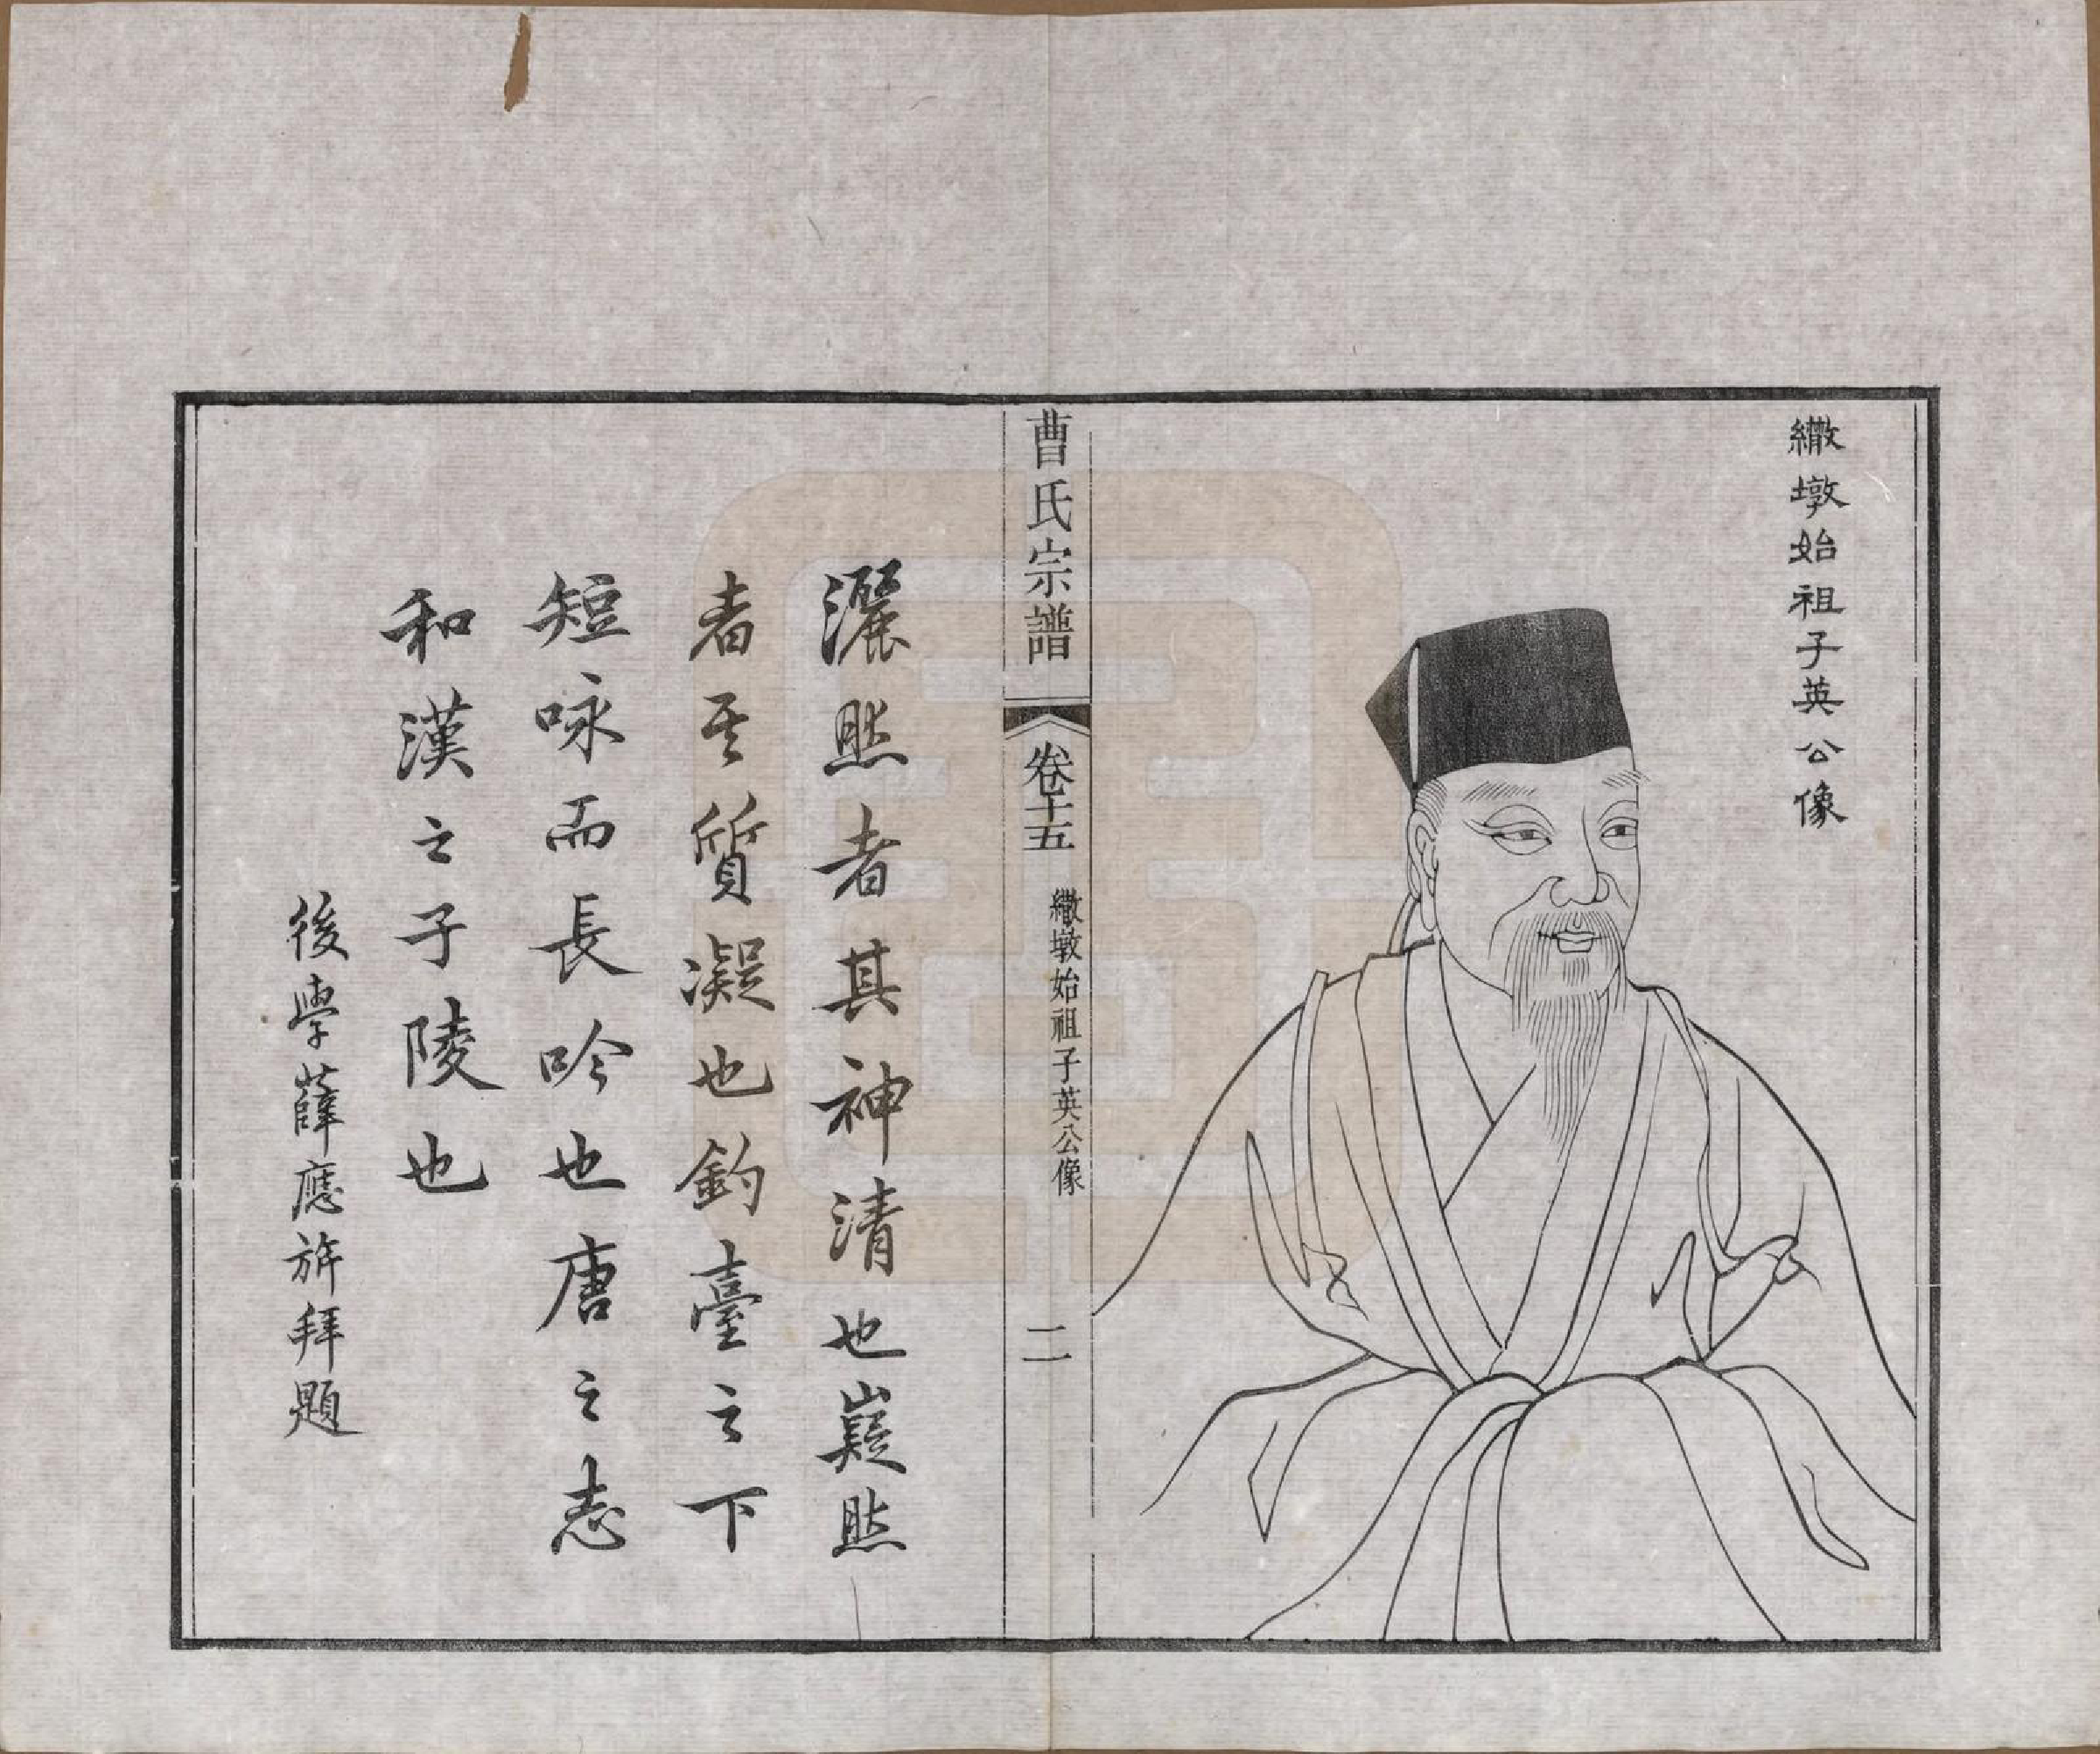 繖墩始祖子英公像
曹氏宗譜
卷十五
繖墩始祖子英公像
二
灑然者其神清也嶷然
者其質凝也釣臺之下
短咏而長吟也唐之志
和漢之子陵也
後學薛應旂拜題